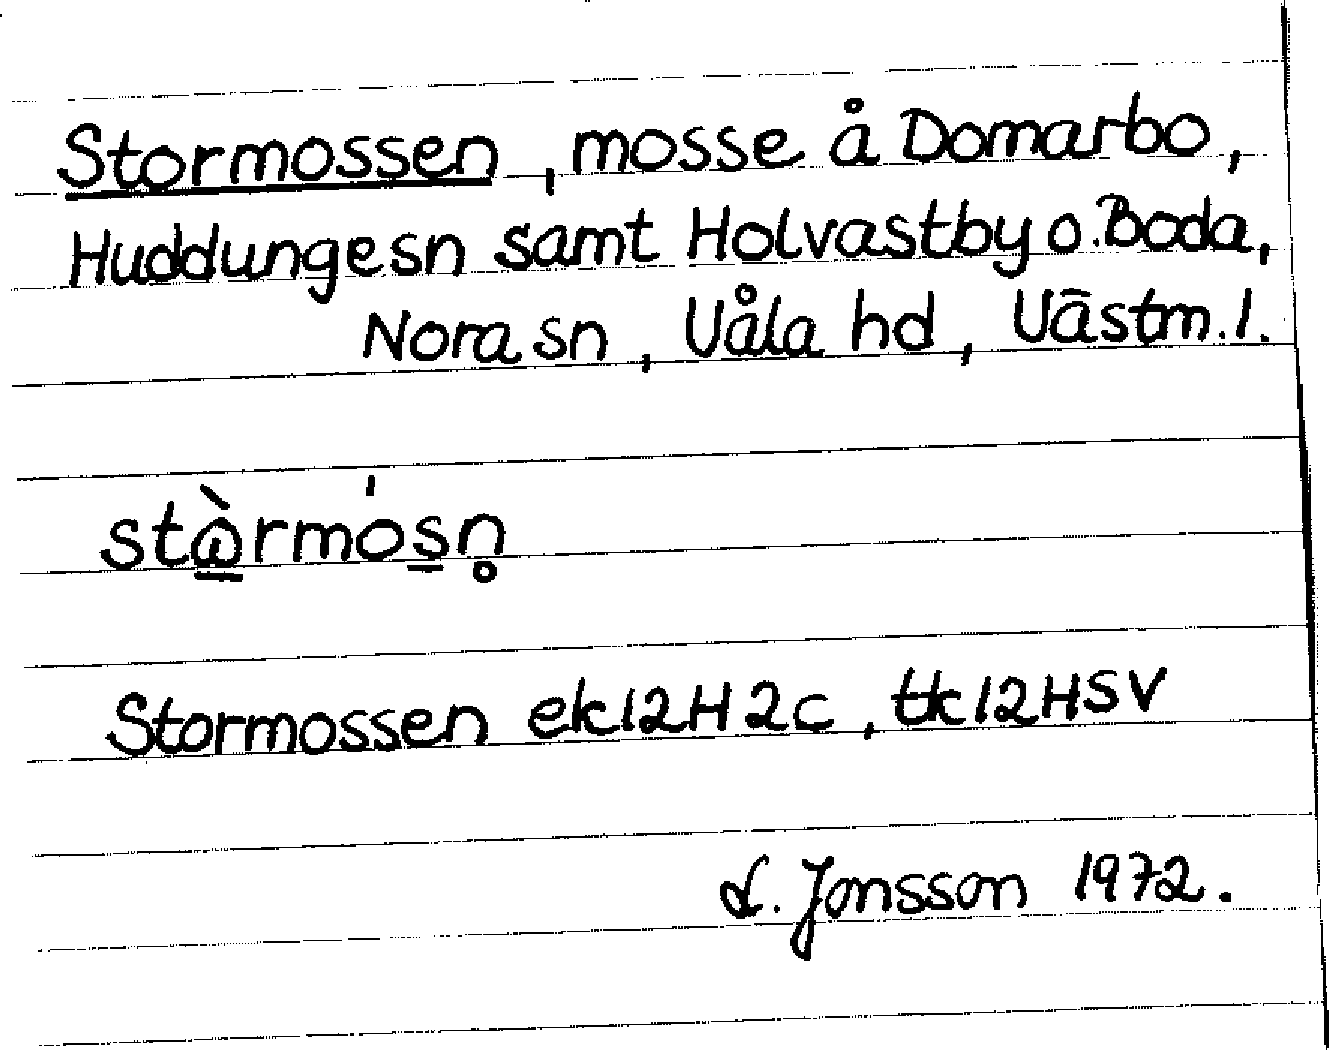 Stormossen, mosse å Domarbo,
Huddunge sn samt Holvastby o. Boda,
Nora sn, Våla hd, Västm. l.
stàrmósn̥
Stormossen ek 12H2c, tk 12HSV
L. Jonsson 1972.